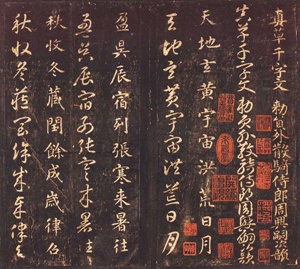 真草千字文 勑員外散騎侍郎周興嗣次韻
真草千字文 勑員外散騎侍郎周興嗣次韻
天地玄黃宇宙洪荒日月
天地玄黃宇宙洪荒日月
盈昃辰宿列張寒來暑往
盈昃辰宿列張寒來暑往
秋收冬藏閏餘成歲律呂
秋收冬藏閏餘成歲律呂